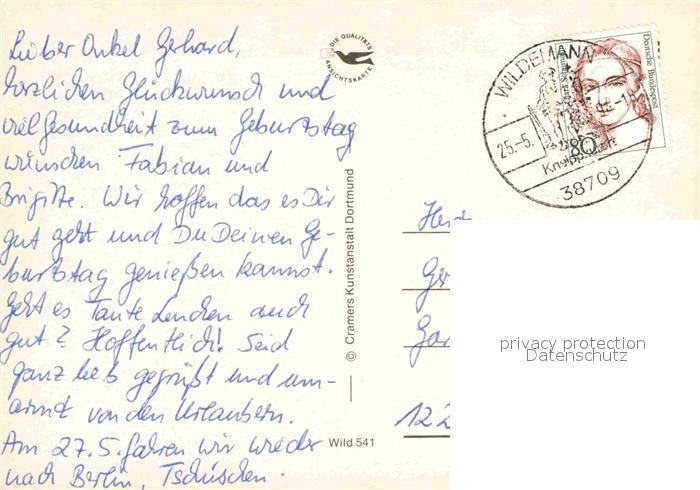 Lieber Onkel Gerhard,
herzlichen Glückwunsch und
viel Gesundheit zum Geburtstag
wünschen Fabian und
Brigitte. Wir hoffen das es Dir
gut geht und Du Deinen Ge-
burtstag genießen kannst.
Geht es Tante Lenchen auch
gut? Hoffentlich! Seid
ganz lieb gegrüßt und um-
armt von den Urlaubern.
Am 27.5. fahren wir wieder
nach Berlin, Tschüschen.
DIE QUALITÄTS
ANSICHTSKARTE
© Cramers Kunstanstalt Dortmund
Wild 541
WILDEMANN
25.-5.
Kneippkurort
38709
Deutsche Bundespost
80
12 2
privacy protection
Datenschutz